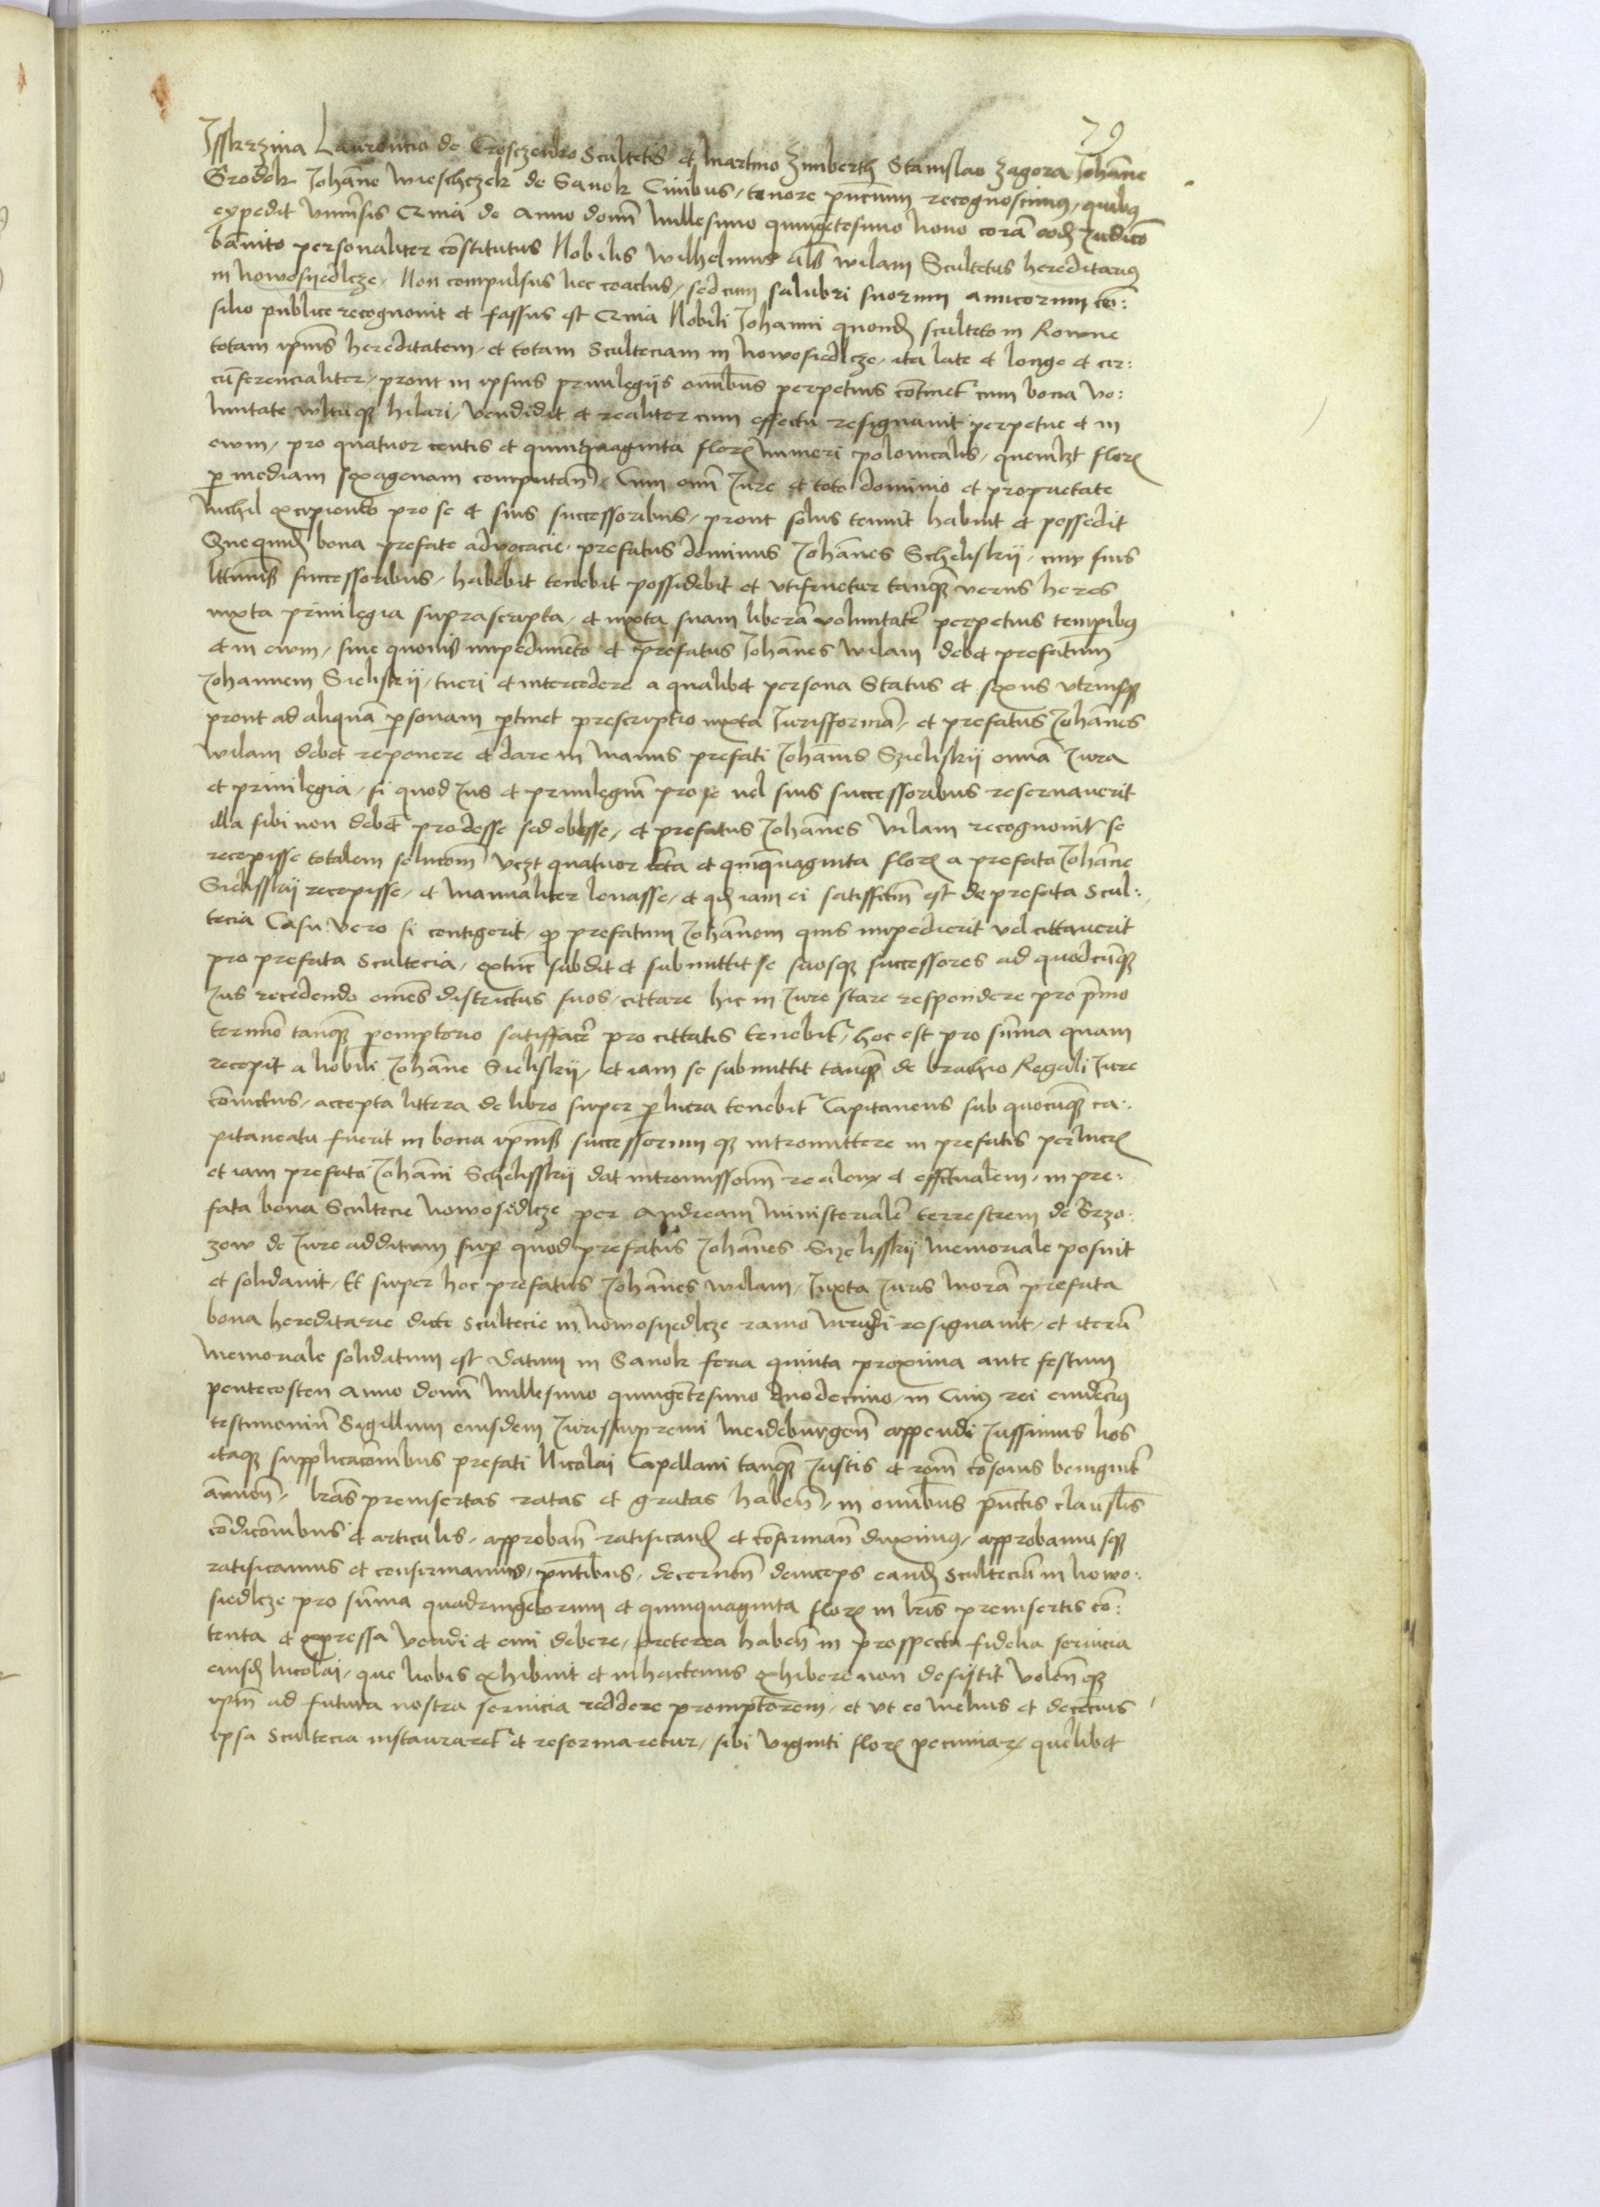 79
Isskrzina Laurentio de Trosczendo Scultetis et Martino Zimberth Stanislao Zagora Johāne
Grodek Johāne Wieschczek de Sanok Civibus, tenore pn̄cium recognoscimus, quibus
expedit vniv̄sis Quia de Anno domī Millesimo quingētesimo nono corā eodē Judicō
bānito personaliter cōstitutus Nobilis Wilhelmus al̄s wilam Scultetus hereditarius
in nowosyedlcze, Non compulsus nec coactus, sed cum salubri suorum amicorum cō:
silio publice recognovit et fassus est Quia Nobili Johanni quondā sculteto in Rowne
totam ipsius hereditatem, et totam Sculteciam in nowosiedlcze, ita late et longe et cir:
cūferencialiter, prout in ipsius privilegijs omībus perpetuis cōtinet̄ cum bona vo:
luntate vultuqȝ hilari, vendidit et realiter cum effectu resignavit perpetue et in
evum, pro quatuor centis et quinquaginta flor̄ numeri polonicalis, quemlȝt flor̄
p mediam sexagenam computan̄, Cum om̄i Jure et toto dominio et proprietate
Nichil excipiendo pro se et suis successoribus, prout solus tenuit habuit et possedit
Que quidē bona prefate advocacie, prefatus dominus Johānes Scheliskij, cum suis
l̄ttimis successoribus, habebit tenebit possidebit et vtifruetur tanqȝ verus heres
iuxta privilegia suprascripta, et iuxta suam liberā voluntatē perpetuis temp̄ibus
et in evum, sine quovis impedimēto et prefatus Johānes wilam debet prefatum
Johannem Sieliskij, tueri et intercedere a qualibet persona Status et sexus vtriusqȝ
prout ad aliquā p̄sonam p̄tinet prescriptio iuxta Jurisformā, et prefatus Johānes
wilam debet reponere et dare in manus prefati Johānis Szieliskij omīa Jura
et privilegia, si quod Jus et privilegiū pro se vel suis successoribus reservaverit
illa sibi non debet prodesse sed obesse, et prefatus Johānes Vilam recognovit se
recepisse totalem solucōm vczt quatuor cēta et quinquaginta flor̄ a prefato Johāne
Sielisskij recepisse, et manualiter levasse, et qd iam ei satisfctm̄ est de prefata Scul:
tecia Casu vero si contigerit, qȝ prefatum Johānem quis impedierit vel cittaverit
pro prefata Scultecia, extunc subdit et submittit se suosqȝ successores ad quodcūqȝ
Jus recedendo omēs districtus suos, cittare hic in Jure stare respondere pro p̄mo
termīo tanqȝ pemptorio satisfacē pro cittatis tenebit̄, hoc est pro sūma quam
recepit a Nobili Johāne Sieliskij, et iam se submittit tanqȝ de brachio Regali Jure
cōvictus, accepta littera de libro super p̄lucra tenebit̄ Capitaneus sub quocūqȝ ca:
pitaneatu fuerit in bona ip̄ius successorum qȝ intromittere in prefatis perlucr̄
et iam prefato Johāni Schelisskij dat intromissōm realem et effctualem, in pre:
fata bona Scultecie Nowosidlcze per Andream Ministerialē terrestrem de Brzo:
zow de Jure additum sup quod prefatus Johānes Szelisskij memoriale posuit
et solidavit, Et super hoc prefatus Johānes wilam, Juxta Juris morā prefata
bona hereditarie dicte Scultecie in Nowosyedlcze ramo viridi resignavit, et iterū
Memoriale solidatum est Datum in Sanok feria quinta proxima ante festum
pentecosten Anno domī Millesimo quingētesimo duodecimo, in Cuius rei evidēcius
testimoniū Sigillum eiusdem Jurissupremi Meideburgen̄ appendi Jussimus Nos
itaqȝ supplicacōnibus prefati Nicolai Capellani tanqȝ Justis et rōni cōsonis benignit̄
ānuen̄, l̄ras preinsertas ratas et gratas haben̄, in omībus pūctis clausl̄is
cōdicōnibus et articulis, approban̄ ratificand̄ et cōfirmān duximus, approbamusqȝ
ratificamus et confirmamus, pn̄tibus, decernen̄ deinceps eandē Sculteciā in Nowo:
siedlcze pro sūma quadringētorum et quinquaginta flor̄ in l̄ris preinsertis cō:
tenta et expressa vendi et emi debere, preterea haben̄ in prospectu fidelia servicia
eiusdē Nicolai, que Nobis exhibuit et inhactenus exhibere non desijtit Volen̄qȝ
ip̄m ad futura nostra servicia reddere promptiorem, et vt eo melius et decētius
ipsa Scultecia instauraret̄ et reformaretur, sibi viginti flor̄ pecuniar̄ quēlibet